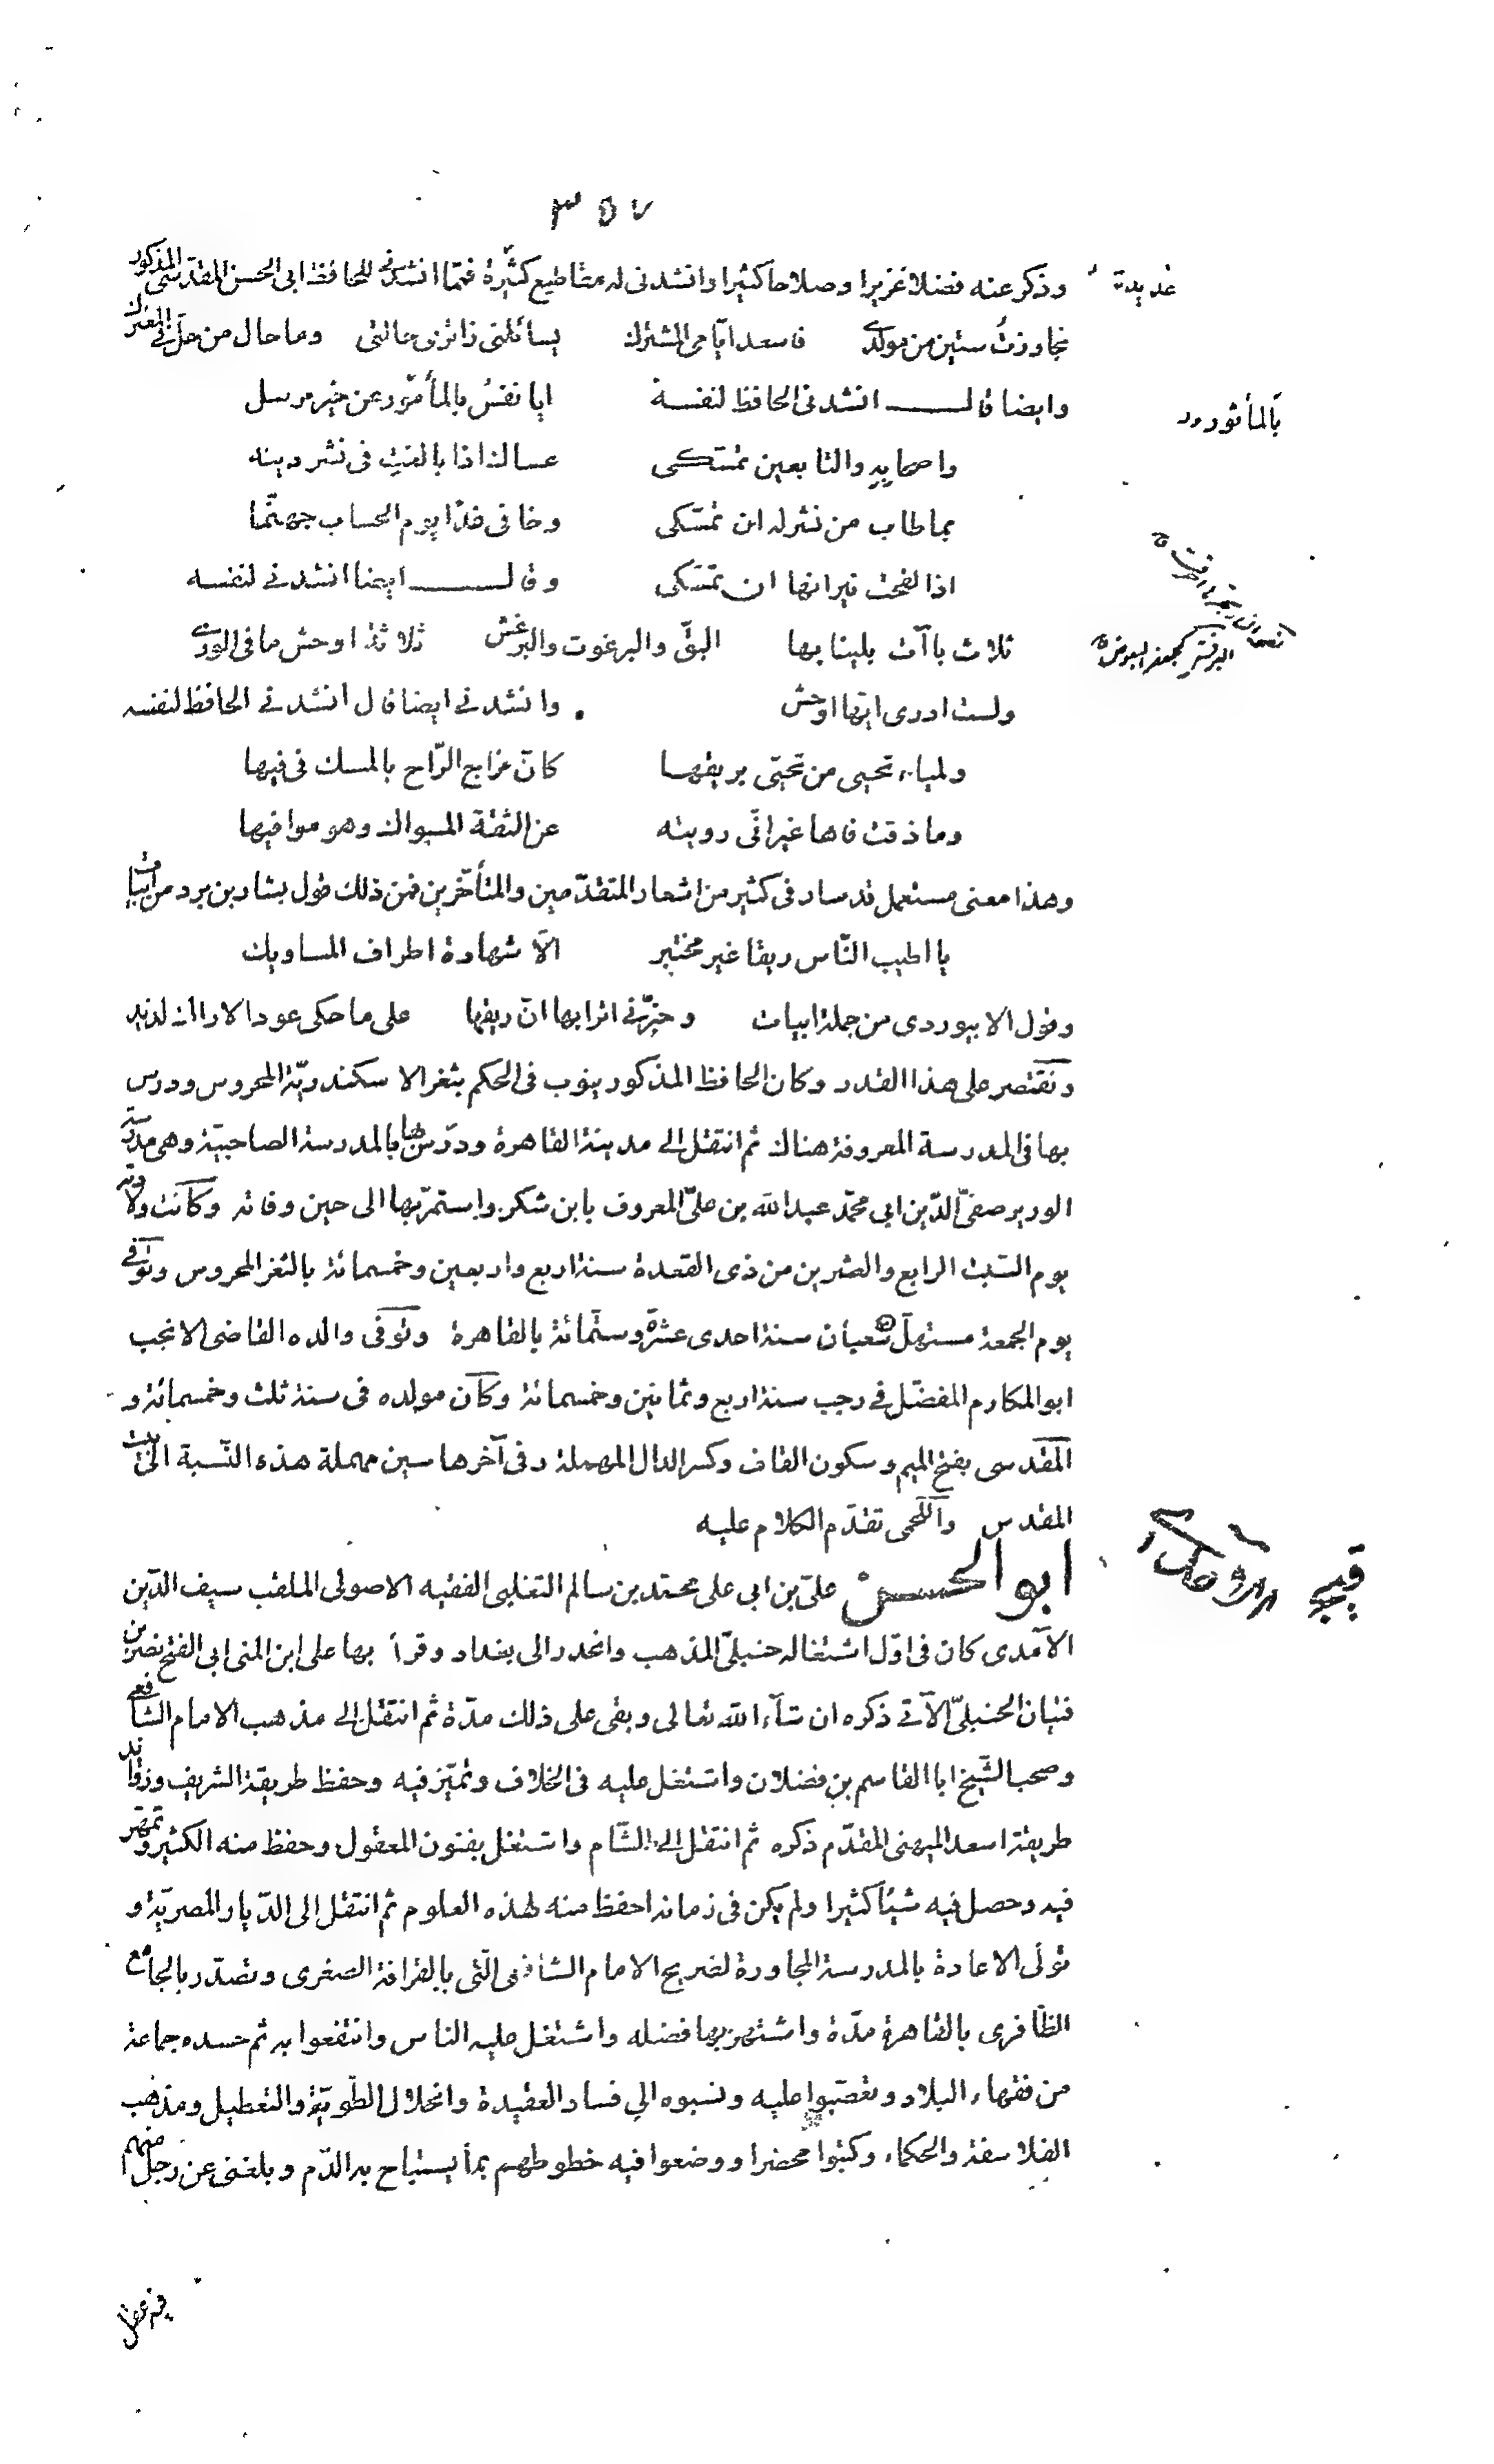 ٣٥٧
وذكر عنه فضلا غزيرا وصلاحا كثيرا وانشدنى له مقاطيع كثيرة فممّا انشدنى للحافظ ابى الحسن المقدسى المذكور
تجاوزتُ ستين من مولدى فاسعد ايّامى المشترك يسائلنى زائرى حالتى وما حال من حلّ فى المعترك
وايضا قال انشدنى الحافظ لنفسه ايا نفسُ بالمأثور عن خير مرسل
بالمأثور
واصحابه والتابعين تمسّكى عساك اذا بالغتِ فى نشر دينه
بما طاب من نشر له ان تمسّكى وخافى غدًا يوم الحساب جهنّما
اذا لفحت نيرانها ان تمسّكى وقال ايضا انشدنى لنفسه
ثلاث باآت بلينا بها البقّ والبرغوث والبرغش ثلاثة اوحش ما فى الورى
ولست ادرى ايّها اوحش وانشدنى ايضا قال انشدنى الحافظ لنفسه
ولمياء تحيى من تحيّى بريقها كانّ مزاج الرّاح بالمسك فى فيها
وما ذقت فاها غير انّى رويته عن الثقة المسواك وهو موافيها
وهذا معنى مستعمل قد سار فى كثير من اشعار المتقدّمين والمتأخّرين فمن ذلك قول بشار بن برد من ابيات
يا اطيب النّاس ريقا غير مختبر الّا شهادة اطراف المساويك
وقول الابيوردى من جملة ابيات وخبّرنى اترابها انّ ريقها على ما حكى عود الاراك لذيذ
ونقتصر على هذا القدر وكان الحافظ المذكور ينوب فى الحكم بثغر الاسكندريّة المحروس ودرس
بها فى المدرسة المعروفة هناك ثم انتقل الى مدينة القاهرة ودرّس بها بالمدرسة الصاحبيّة وهى مدرسة
الوزير صفىّ الدّين ابى محمّد عبد الله بن علىّ المعروف بابن شكر واستمرّ بها الى حين وفاته وكانت ولادته
يوم السّبت الرابع والعشرين من ذى القعدة سنة اربع واربعين وخمسمائة بالثغر المحروس وتوفى
يوم الجمعة مستهلّ شعبان سنة احدى عشرة وستّمائة بالقاهرة وتوفى والده القاضى الانجب
ابو المكارم المفضّل فى رجب سنة اربع وثمانين وخمسمائة وكان مولده فى سنة ثلث وخمسمائة و
المقدسى بفتح الميم وسكون القاف وكسر الدال المهملة وفى آخرها سين مهملة هذه النّسبة الى بيت
المقدس واللّخمى تقدّم الكلام عليه
ابو الحسن علىّ بن ابى على محمّد بن سالم التغلبى الفقيه الاصولى الملقب سيف الدّين
الآمدى كان فى اوّل اشتغاله حنبلىّ المذهب وانحدر الى بغداد وقرأ بها على ابن المنى ابى الفتح نصر بن
فتيان الحنبلىّ الآتى ذكره ان شآء الله تعالى وبقى على ذلك مدّة ثم انتقل الى مذهب الامام الشافعى
وصحب الشّيخ ابا القاسم بن فضلان واشتغل عليه فى الخلاف وتميّز فيه وحفظ طريقة الشريف وزوائد
طريقة اسعد الميهنى المقدّم ذكره ثم انتقل الى الشّام واشتغل بفنون المعقول وحفظ منه الكثير وتمهّر
فيه وحصل فيه شيئا كثيرا ولم يكن فى زمانه احفظ منه لهذه العلوم ثم انتقل الى الدّيار المصريّة و
تولّى الاعادة بالمدرسة المجاورة لضريح الامام الشافعى الّتى بالقرافة الصغرى وتصدّر بالجامع
الظّافرى بالقاهرة مدّة واشتهر بها فضله واشتغل عليه الناس وانتفعوا به ثم حسده جماعة
من فقهاء البلاد وتعصّبوا عليه ونسبوه الى فساد العقيدة وانحلال الطّويّة والتعطيل ومذهب
الفلاسفة والحكماء وكتبوا محضرا ووضعوا فيه خطوطهم بما يستباح به الدّم وبلغنى عن رجل منهم
فيه عقل